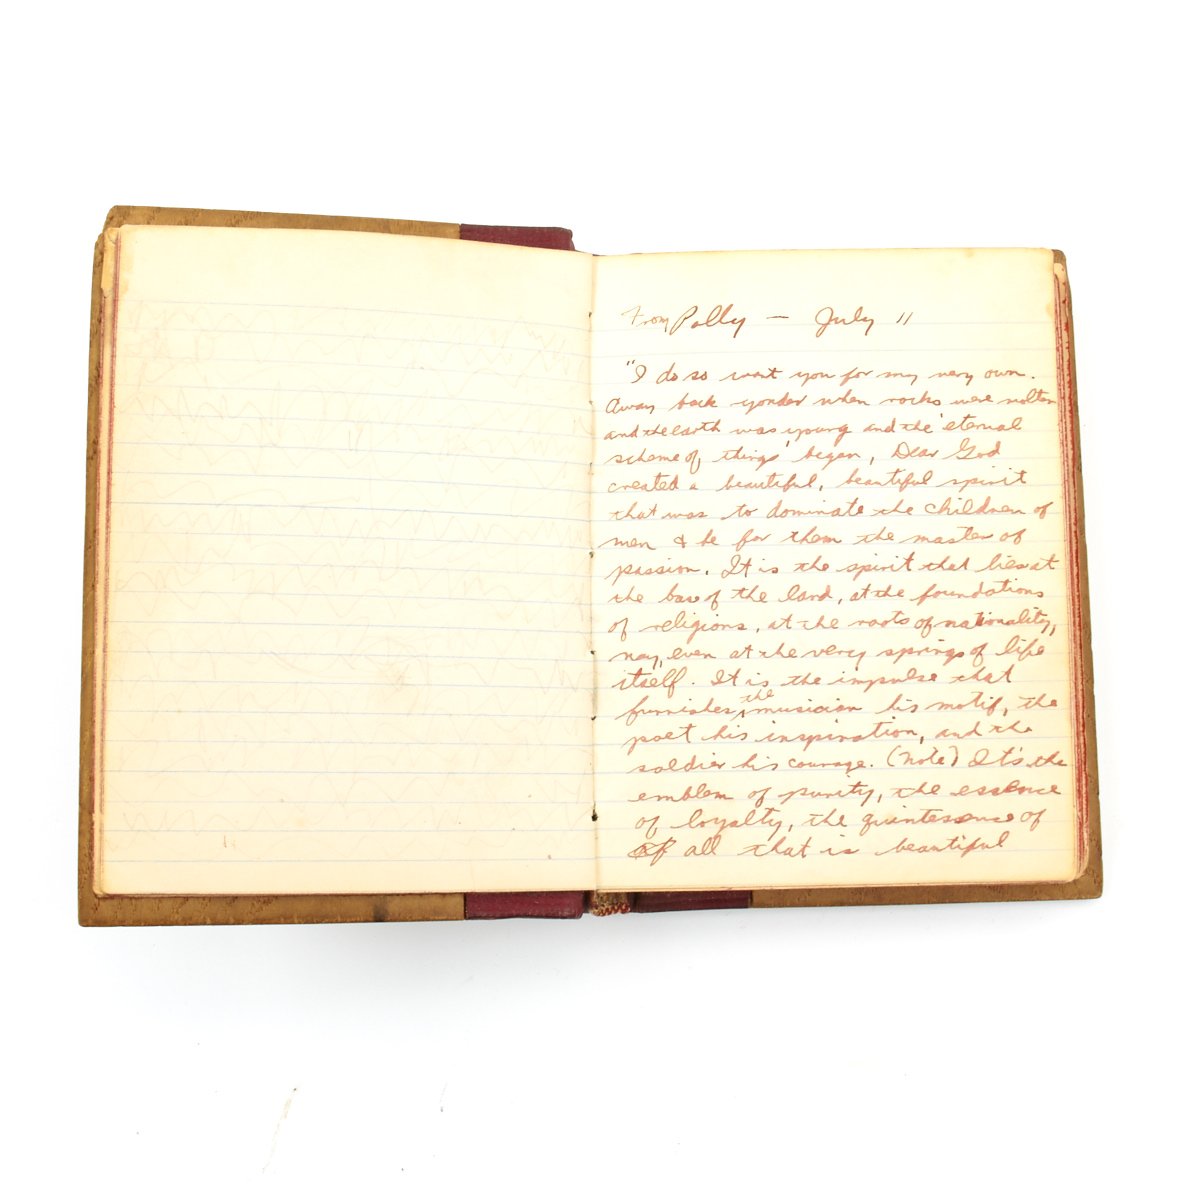 From Polly — July 11
"I do so want you for my very own.
Away back yonder when rocks were molten
and the earth was young and the 'eternal
scheme of things' began, Dear God
created a beautiful, beautiful spirit
that was to dominate the children of
men & be for them the master of
passion. It is the spirit that lies at
the base of the land, at the foundations
of religions, at the roots of nationality,
nay, even at the very springs of life
itself. It is the impulse that
furnishes the musician his motif, the
poet his inspiration, and the
soldier his courage. (Note) It's the
emblem of purity, the essence
of loyalty, the quintessense of
of all that is beautiful